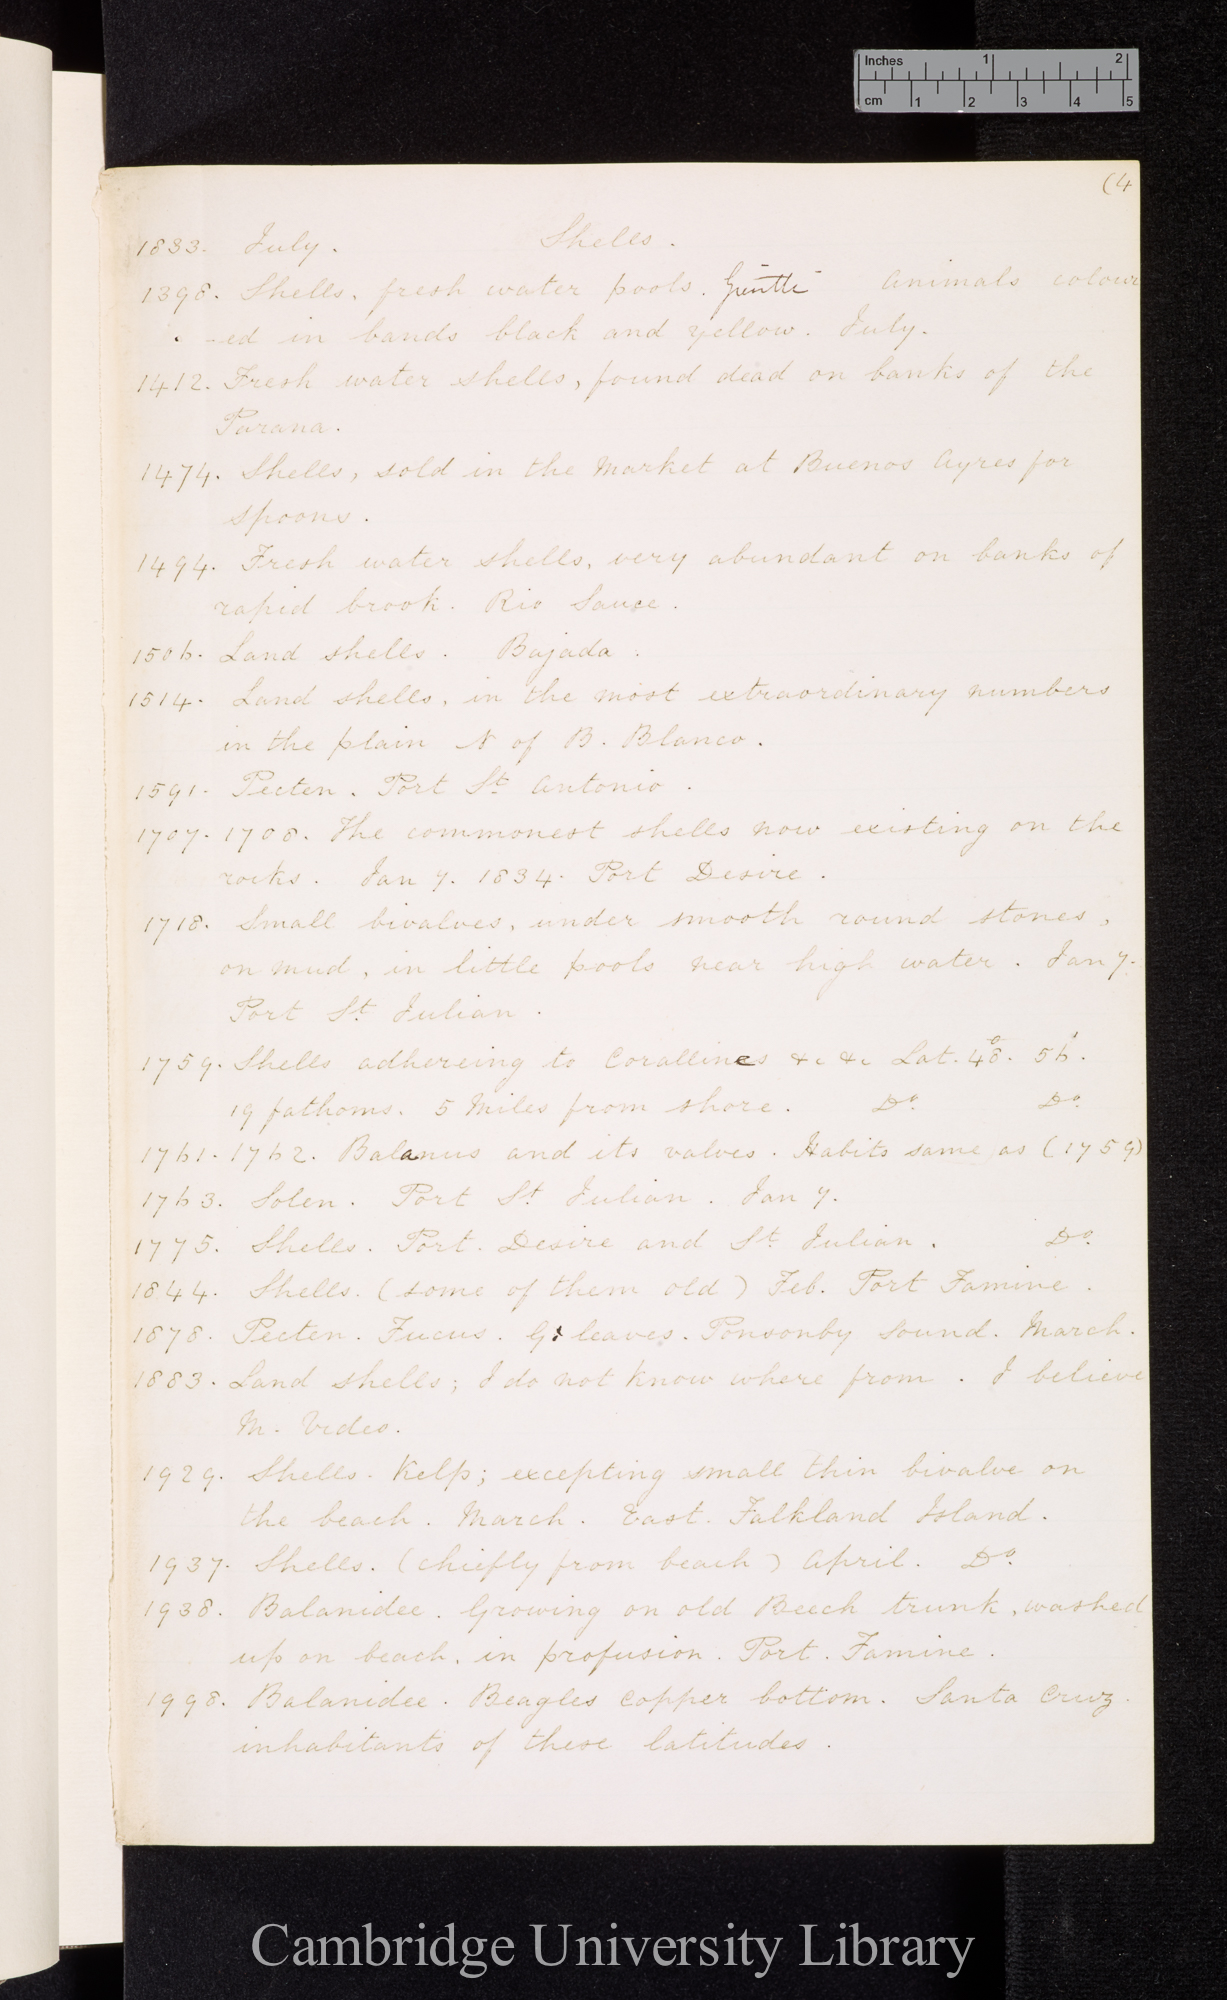 Inches 1 2
cm 1 2 3 4 5
(4
1833. July. Shells.
1398. Shells, fresh water pools. animals colour
-ed in bands black and yellow. July.
1412. Fresh water shells, found dead on banks of the
Parana.
1474. Shells, sold in the Market at Buenos Ayres for
spoons.
1494. Fresh water shells, very abundant on banks of
rapid brook. Rio Sauce.
1506. Land shells. Bajada.
1514. Land shells, in the most extraordinary numbers
in the plain N of B. Blanco.
1591. Pecten. Port St. Antonio.
1707. 1708. The commonest shells now existing on the
rocks. Jan 7. 1834. Port Desire.
1718. Small bivalves, under smooth round stones,
on mud, in little pools near high water. Jan 7.
Port St. Julian.
1759. Shells adhereing to Corallines &c &c Lat. 48°. 56'.
19 fathoms. 5 Miles from shore. Do. Do.
1761. 1762. Balanus and its valves. Habits same as (1759)
1763. Solen. Port St Julian. Jan 7.
1775. Shells. Port. Desire and St. Julian. Do.
1844. Shells. (some of them old) Feb. Port Famine.
1878. Pecten. Fucus. G: leaves. Ponsonby Sound. March.
1883. Land shells; I do not know where from. I believe
M. Video.
1929. Shells. Kelp; excepting small thin bivalve on
the beach. March. East. Falkland Island.
1937. Shells. (chiefly from beach) April. Do.
1938. Balanidee. Growing on old Beech trunk, washed
up on beach, in profusion. Port. Famine.
1998. Balanidee. Beagles copper bottom. Santa Cruz.
inhabitants of these latitudes.
Cambridge University Library